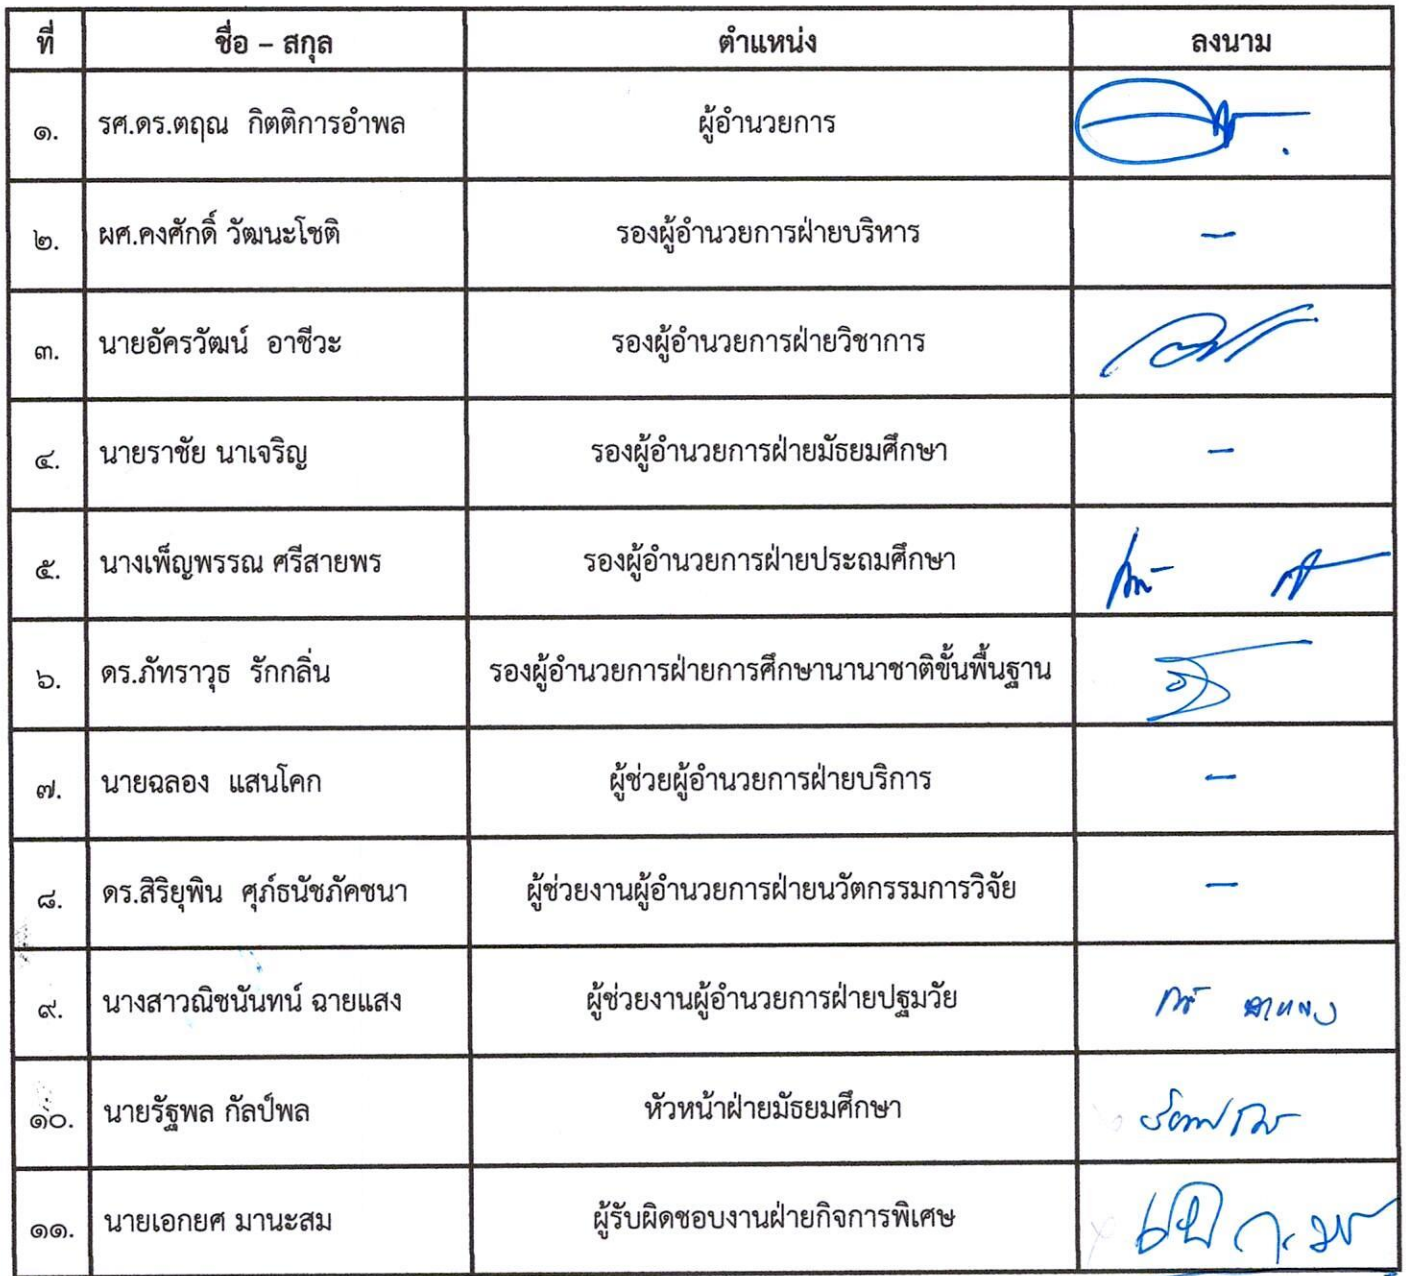 ที่ ชื่อ – สกุล ตำแหน่ง ลงนาม
๑. รศ.ดร.ตฤณ กิตติการอำพล ผู้อำนวยการ
๒. ผศ.คงศักดิ์ วัฒนะโชติ รองผู้อำนวยการฝ่ายบริหาร –
๓. นายอัครวัฒน์ อาชีวะ รองผู้อำนวยการฝ่ายวิชาการ
๔. นายราชัย นาเจริญ รองผู้อำนวยการฝ่ายมัธยมศึกษา –
๕. นางเพ็ญพรรณ ศรีสายพร รองผู้อำนวยการฝ่ายประถมศึกษา
๖. ดร.ภัทราวุธ รักกลิ่น รองผู้อำนวยการฝ่ายการศึกษานานาชาติขั้นพื้นฐาน
๗. นายฉลอง แสนโคก ผู้ช่วยผู้อำนวยการฝ่ายบริการ –
๘. ดร.สิริยุพิน ศุภ์ธนัชภัคชนา ผู้ช่วยงานผู้อำนวยการฝ่ายนวัตกรรมการวิจัย –
๙. นางสาวณิชนันทน์ ฉายแสง ผู้ช่วยงานผู้อำนวยการฝ่ายปฐมวัย
๑๐. นายรัฐพล กัลป์พล หัวหน้าฝ่ายมัธยมศึกษา
๑๑. นายเอกยศ มานะสม ผู้รับผิดชอบงานฝ่ายกิจการพิเศษ